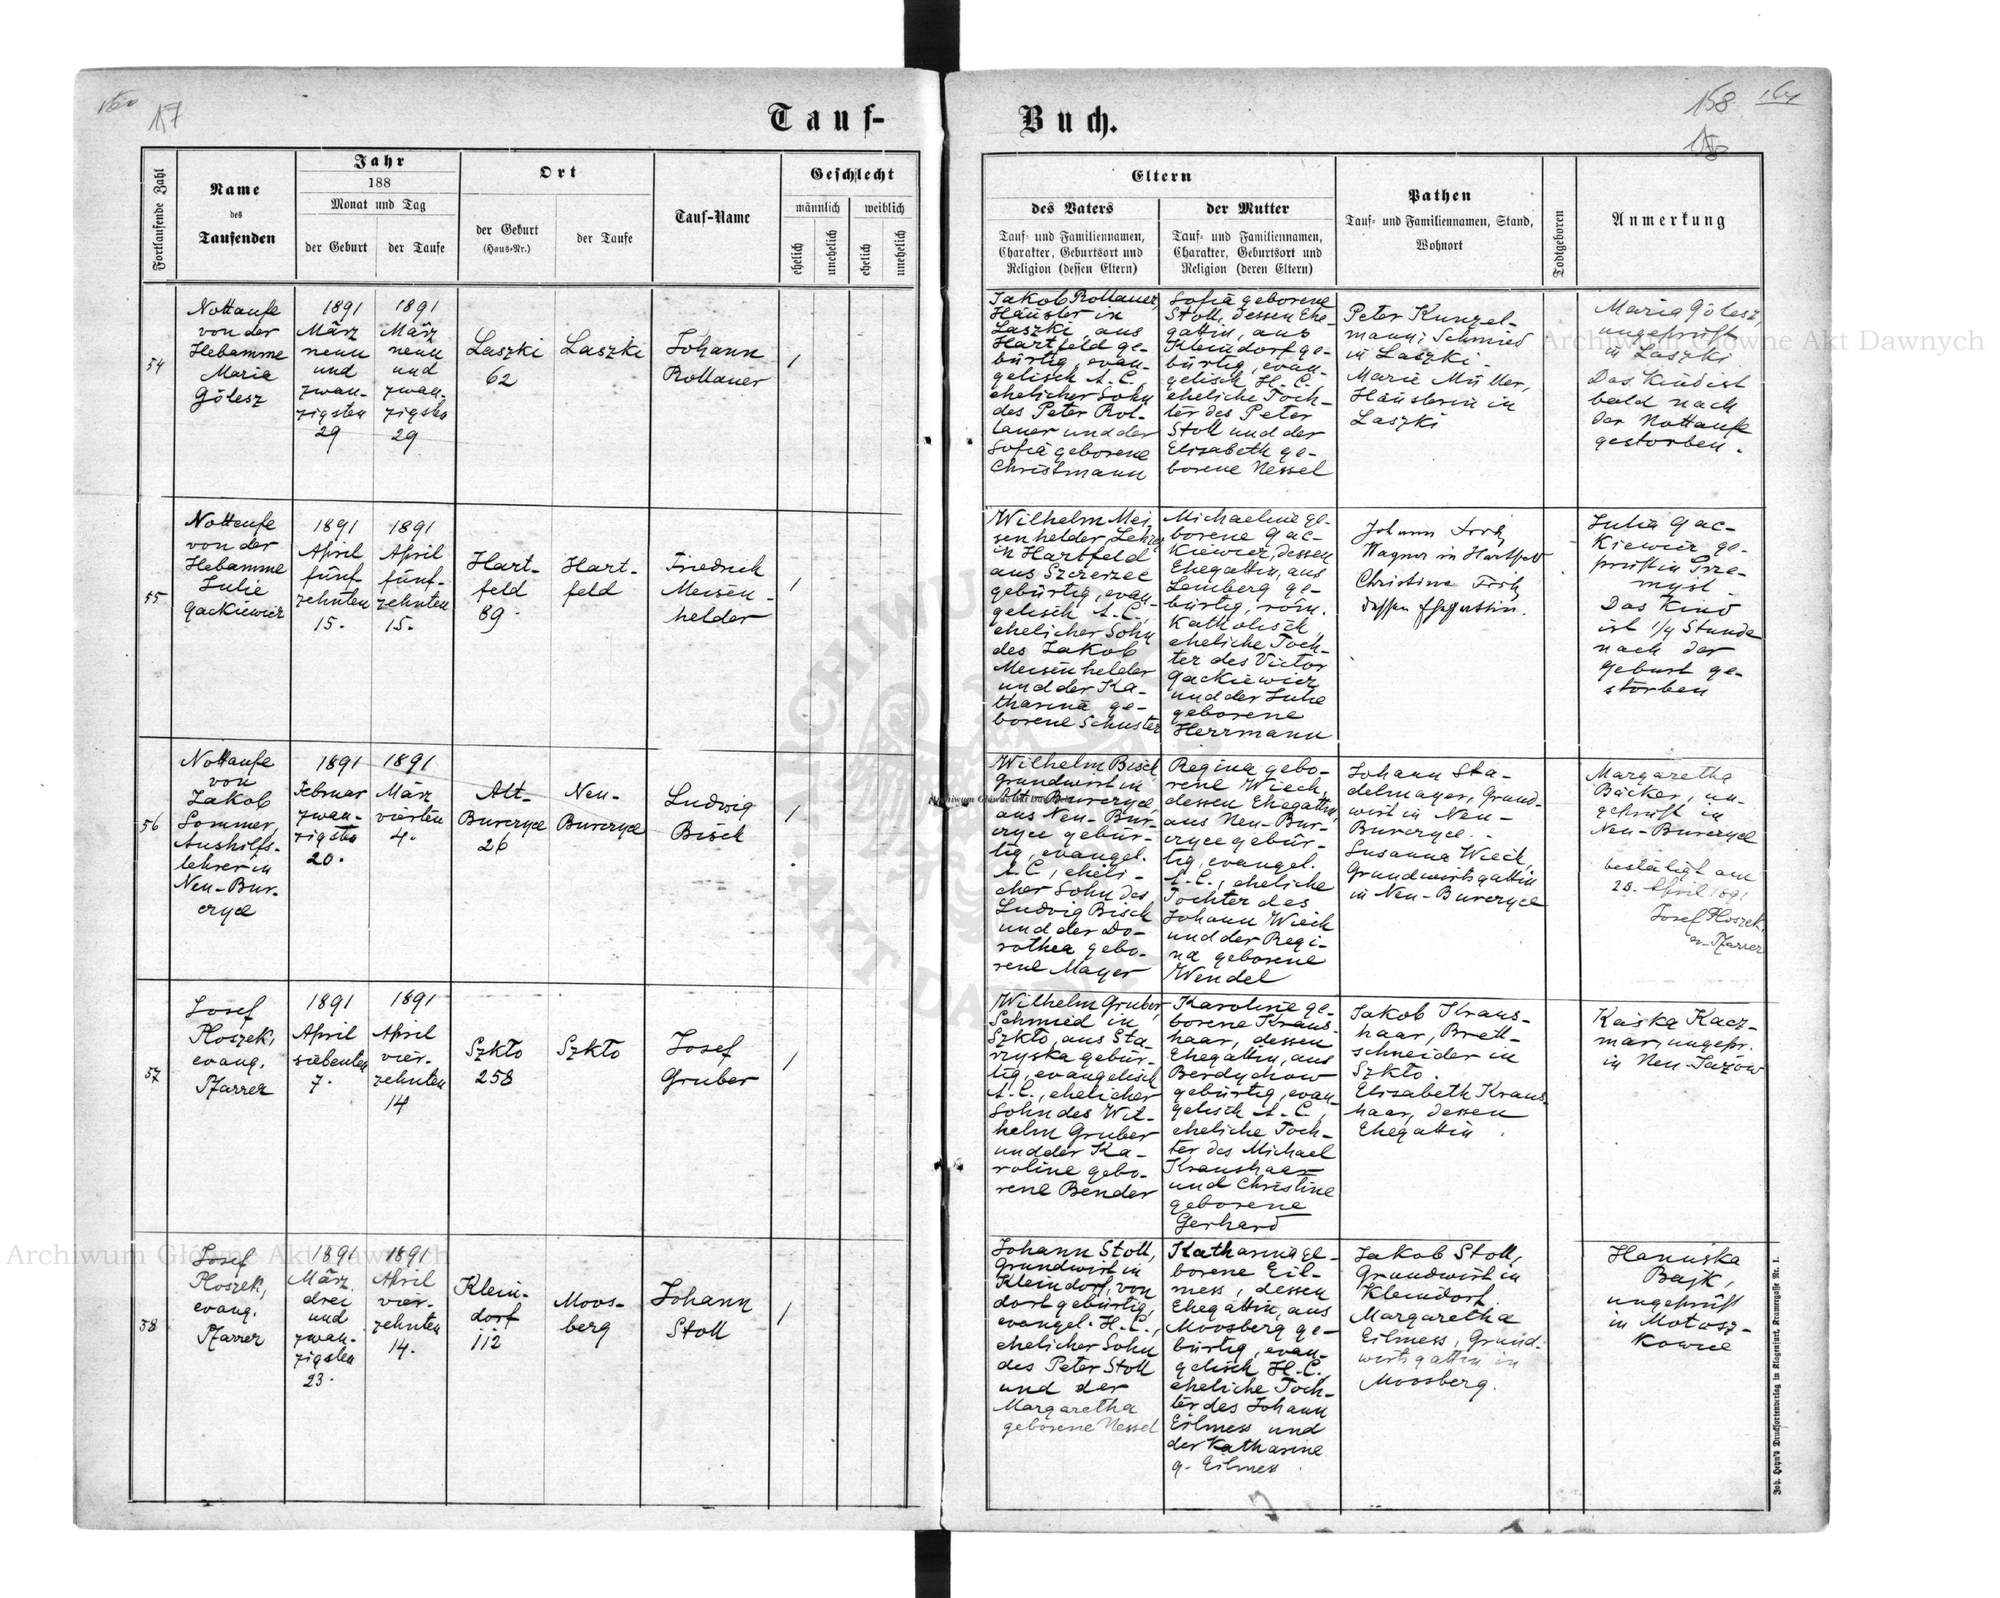 157
Tauf-
Buch.
158
Fortlaufende Zahl
Name
des
Taufenden
Jahr
188
Monat und Tag
der Geburt
der Taufe
Ort
der Geburt
(Haus-Nr.)
der Taufe
Tauf-Name
Geschlecht
männlich
weiblich
ehelich
unehelich
ehelich
unehelich
Eltern
des Vaters
Tauf- und Familiennamen,
Charakter, Geburtsort und
Religion (dessen Eltern)
der Mutter
Tauf- und Familiennamen,
Charakter, Geburtsort und
Religion (deren Eltern)
Pathen
Tauf- und Familiennamen, Stand,
Wohnort
Todtgeboren
Anmerkung
54
Nottaufe
von der
Hebamme
Maria
Gölesz
1891
März
neun
und
zwan-
zigsten
29
1891
März
neun
und
zwan-
zigsten
29
Laszki
62
Laszki
Johann
Rollauer
1
Jakob Rollauer,
Häusler in
Laszki, aus
Hartfeld ge-
bürtig, evan-
gelisch A. C.
ehelicher Sohn
des Peter Rol-
lauer und der
Sofia geborene
Christmann
Sofia geborene
Stoll, dessen Ehe-
gattin, aus
Kleindorf ge-
bürtig, evan-
gelisch H. C.,
eheliche Toch-
ter des Peter
Stoll und der
Elisabeth ge-
borene Nessel
Peter Kunzel-
mann, Schmied
in Laszki.
Marie Müller,
Häuslerin in
Laszki
Maria Gölesz,
ungeprüft
in Laszki
Das Kind ist
bald nach
der Nottaufe
gestorben.
55
Nottaufe
von der
Hebamme
Julie
Gackiewicz
1891
April
fünf-
zehnten
15.
1891
April
fünf-
zehnten
15.
Hart-
feld
89.
Hart-
feld
Friedrich
Meisen-
helder
1
Wilhelm Mei-
senhelder, Lehrer
in Hartfeld
aus Szczerzec
gebürtig, evan-
gelisch A. C.,
ehelicher Sohn
des Jakob
Meisenhelder
und der Ka-
tharina ge-
borene Schuster
Michaeline ge-
borene Gac-
kiewicz, dessen
Ehegattin, aus
Lemberg ge-
bürtig, röm.
katholisch
eheliche Toch-
ter des Victor
Gackiewicz
und der Julie
geborene
Herrmann
Johann
Wagner in Hartfeld
Christine
dessen Ehegattin.
Julia Gac-
kiewicz ge-
prüft in Prze-
myśl.
Das Kind
ist 1/4 Stunde
nach der
Geburt ge-
storben
56
Nottaufe
von
Jakob
Sommer,
Aushilfs-
lehrer in
Neu-Bur-
czyce
1891
Februar
zwan-
zigsten
20.
1891
März
vierten
4.
Alt-
Burczyce
26
Neu-
Burczyce
Ludwig
Bisch
1
Wilhelm Bisch
Grundwirt in
Alt-Burczyce,
aus Neu-Bur-
czyce gebür-
tig, evangel.
A. C., eheli-
cher Sohn des
Ludwig Bisch
und der Do-
rothea gebo-
rene Mayer
Regina gebo-
rene Wiech,
dessen Ehegattin
aus Neu-Bur-
czyce gebür-
tig, evangel.
A. C., eheliche
Tochter des
Johann Wiech
und der Regi-
na geborene
Wendel
Johann Sta-
delmayer, Grund-
wirt in Neu-
Burczyce.
Susanna Wiech,
Grundwirtsgattin
in Neu-Burczyce
Margaretha
Bäcker, un-
geprüft in
Neu-Burczyce
bestätigt am
28. April 1891
Josef Ploszek,
ev. Pfarrer
57
Josef
Ploszek,
evang.
Pfarrer
1891
April
siebenten
7.
1891
April
vier-
zehnten
14
Szkło
258
Szkło
Josef
Gruber
1
Wilhelm Gruber,
Schmied in
Szkło, aus Sta-
rzyska gebür-
tig, evangelisch
A. C., ehelicher
Sohn des Wil-
helm Gruber
und der Ka-
roline gebo-
rene Bender
Karoline ge-
borene Kraus-
haar, dessen
Ehegattin, aus
Berdychow
gebürtig, evan-
gelisch A. C.,
eheliche Toch-
ter des Michael
Kraushaar
und Christine
geborene
Gerhard
Jakob Kraus-
haar, Brett-
schneider in
Szkło.
Elisabeth Kraus-
haar, dessen
Ehegattin.
Kaska Kacz-
mar, ungepr.
in Neu-Jazow
58
Josef
Ploszek,
evang.
Pfarrer
1891
März
drei
und
zwan-
zigsten
23.
1891
April
vier-
zehnten
14.
Klein-
dorf
112
Moos-
berg
Johann
Stoll
1
Johann Stoll,
Grundwirt in
Kleindorf, von
dort gebürtig,
evangel. H. C.,
ehelicher Sohn
des Peter Stoll
und der
Margaretha
geborene Nessel
Katharina ge-
borene Eil-
mess, dessen
Ehegattin, aus
Moosberg ge-
bürtig, evan-
gelisch H. C.
eheliche Toch-
ter des Johann
Eilmess und
der Katharine
g. Eilmess.
Jakob Stoll,
Grundwirt in
Kleindorf
Margaretha
Eilmess, Grund-
wirtsgattin in
Moosberg.
Hanuska
Bajk,
ungeprüft
in Motosz-
kowie
Joh. Heyn's Drucksortenverlag in Klagenfurt, Kramergasse Nr. 1.
Archiwum Główne Akt Dawnych
Archiwum Główne Akt Dawnych
Archiwum Główne Akt Dawnych